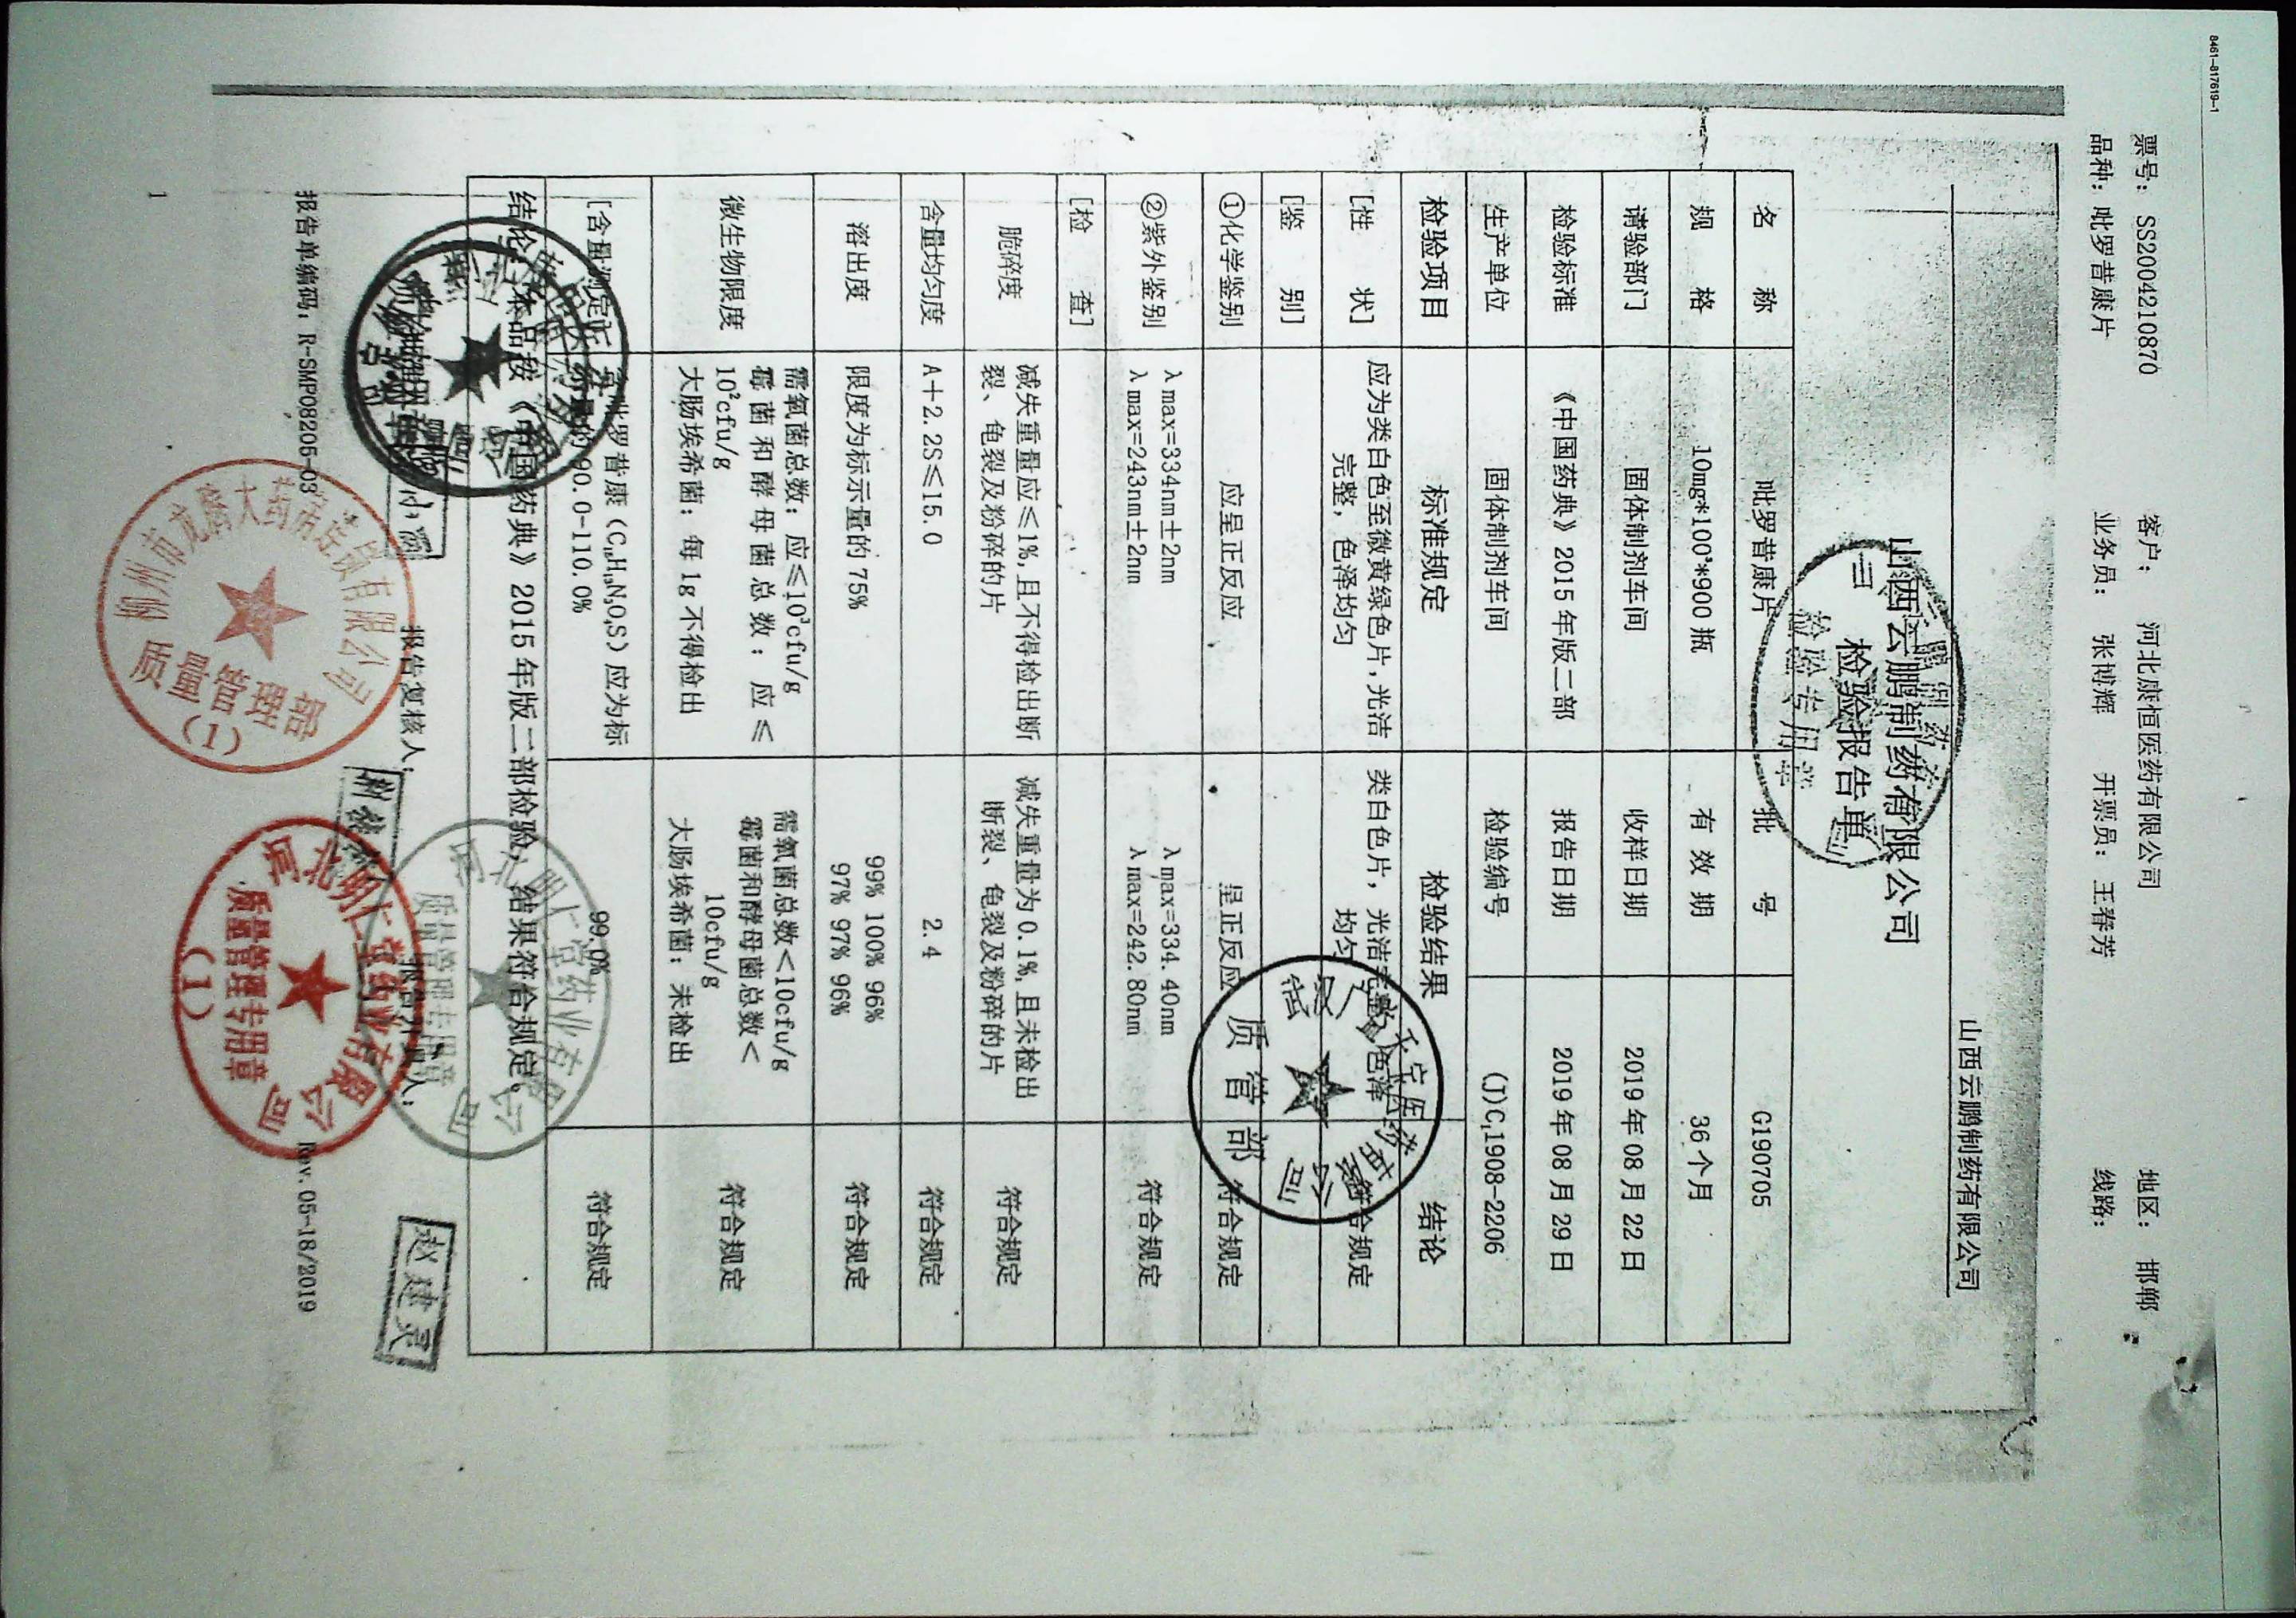 8461-817619-1
票号: SS20042108​70 客户: 河北康恒医药有限公司 地区: 邯郸
品种: 吡罗昔康片 业务员: 张博辉 开票员: 王春芳 线路:
山西云鹏制药有限公司
山西云鹏制药有限公司
检验报告单
检验专用章
名 称 吡罗昔康片 批 号 G190705
规 格 10mg*100*900瓶 有效期 36个月
请验部门 固体制剂车间 收样日期 2019年08月22日
检验标准 《中国药典》2015年版二部 报告日期 2019年08月29日
生产单位 固体制剂车间 检验编号 (J)C,1908-2206
检验项目 标准规定 检验结果 结论
[性 状] 应为类白色至微黄绿色片,光洁 类白色片,光洁完整,色泽 符合规定
完整,色泽均匀 均匀
[鉴 别]
①化学鉴别 应呈正反应 呈正反应 符合规定
②紫外鉴别 λmax=334nm±2nm λmax=334.40nm 符合规定
λmax=243nm±2nm λmax=242.80nm
[检 查]
脆碎度 减失重量应≤1%,且不得检出断 减失重量为0.1%,且未检出 符合规定
裂、龟裂及粉碎的片 断裂、龟裂及粉碎的片
含量均匀度 A+2.2S≤15.0 2.4 符合规定
溶出度 限度为标示量的75% 99% 100% 96% 符合规定
97% 97% 96%
微生物限度 需氧菌总数:应≤10³cfu/g 需氧菌总数<10cfu/g 符合规定
霉菌和酵母菌总数:应≤ 霉菌和酵母菌总数<
10²cfu/g 10cfu/g
大肠埃希菌:每1g不得检出 大肠埃希菌:未检出
[含量测定] 含吡罗昔康(C₁₅H₁₃N₃O₄S)应为标 99.0% 符合规定
示量的90.0-110.0%
结论:本品按《中国药典》2015年版二部检验,结果符合规定。
报告复核人: 报告人:
赵建灵
报告单编码: R-SMP08205-03 Rev.05-18/2019
质管部
河北明仁堂药业有限公司
质量管理专用章
(1)
龙腾大药房连锁有限公司
质量管理部
(1)
1